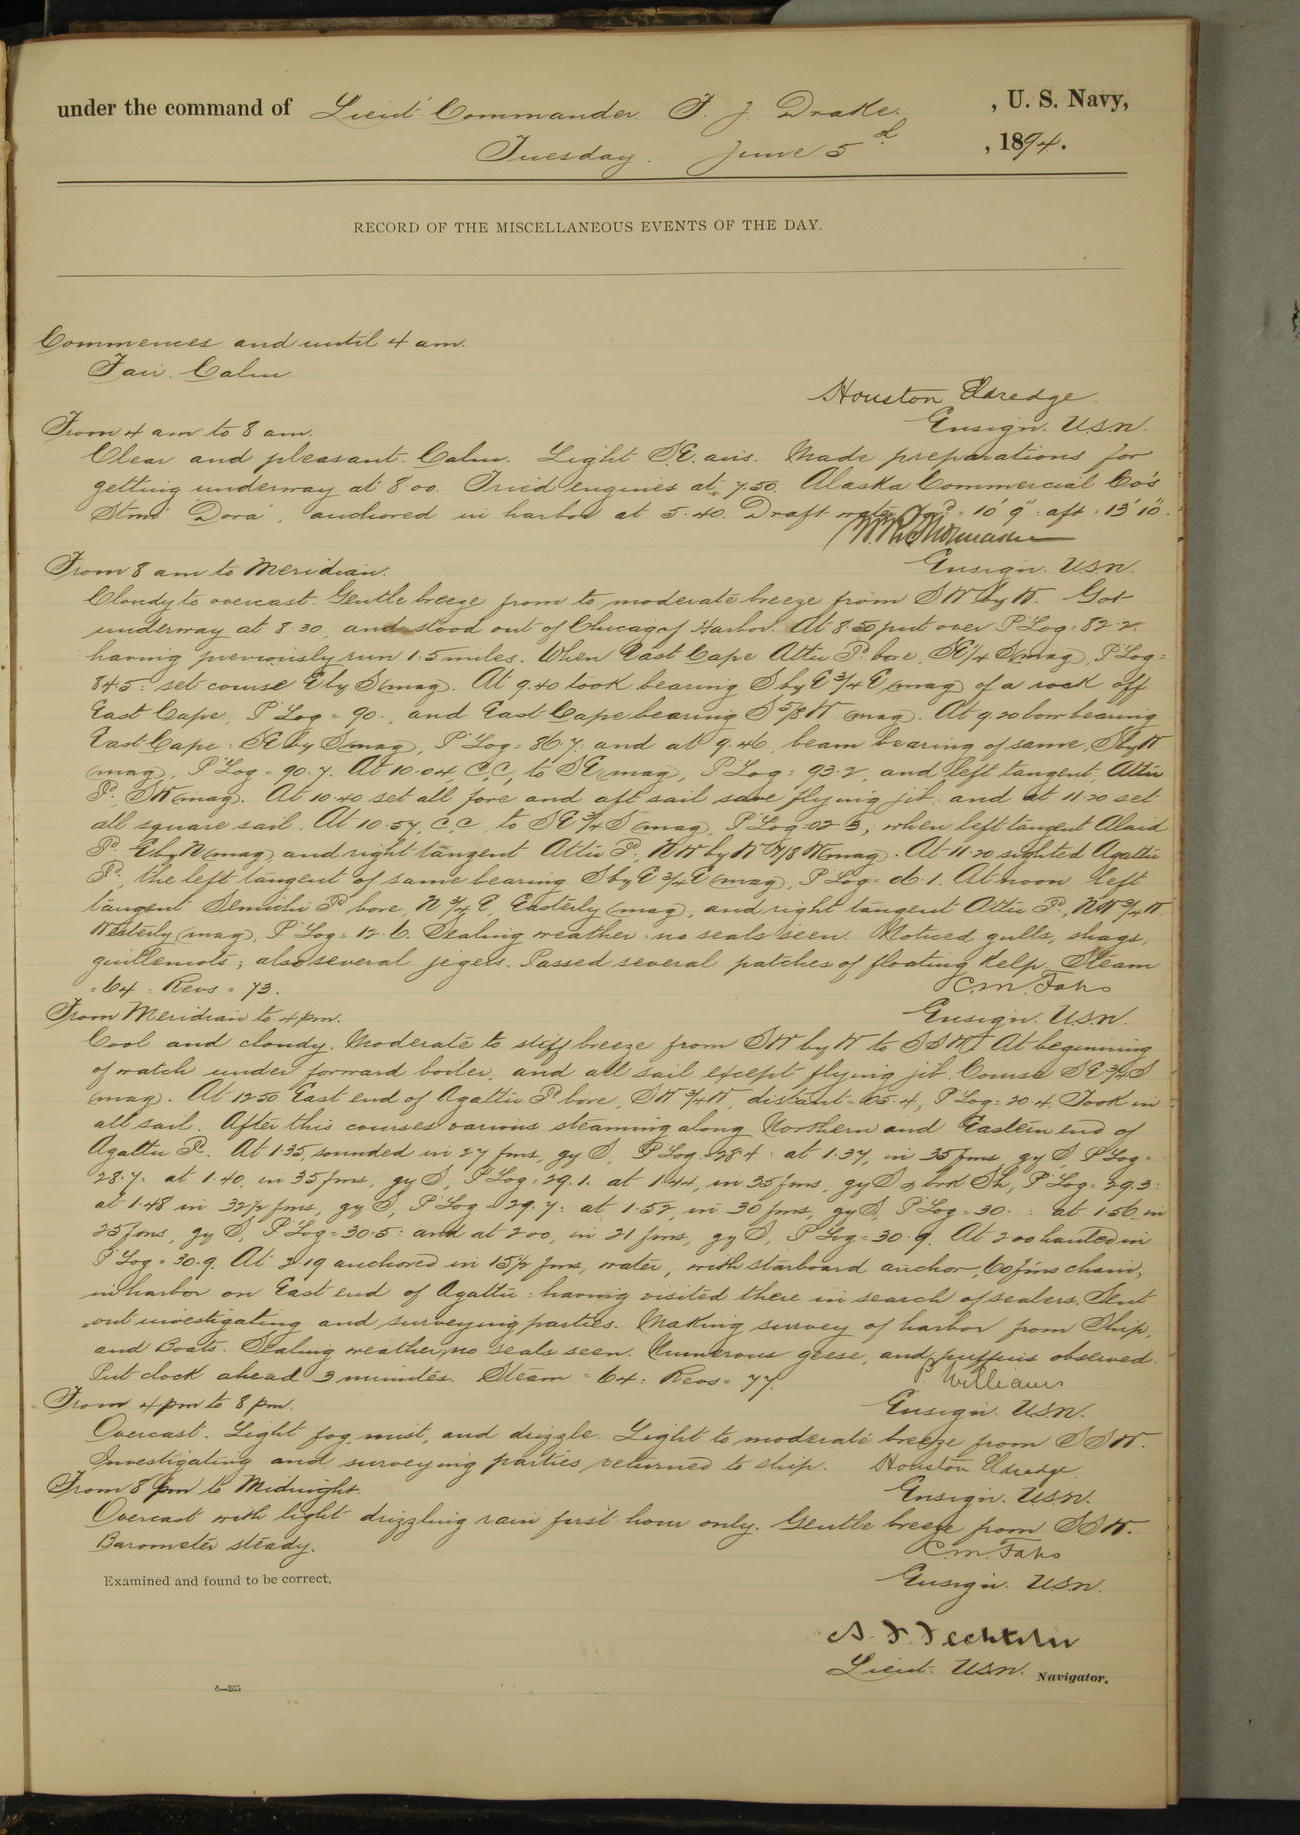 under the command of Lieut. Commander F. J. Drake. , U. S. Navy,
Tuesday. June 5th , 1894.
RECORD OF THE MISCELLANEOUS EVENTS OF THE DAY.
Commences and until 4 am.
Fair. Calm.
Houston Eldredge.
Ensign. U.S.N.
From 4 am to 8 am.
Clear and pleasant. Calm. Light S.E. airs. Made preparations for
getting underway at 8 00. Tried engines at 7.50. Alaska Commercial Co's
Stmr "Dora", anchored in harbor at 5.40. Draft water for'd = 10' 9" : aft = 13' 10".
Ensign. U.S.N.
From 8 am to Meridian.
Cloudy to overcast. Gentle breeze from to moderate breeze from SW by W. Got
underway at 8.30, and stood out of Chicagof Harbor. At 8.50 put over P Log = 82.2.
having previously run 1.5 miles. When East Cape Attu I. bore, SE 1/4 S (mag), P Log =
84.5: set course E by S (mag). At 9.40 took bearing S by E 3/4 E (mag) of a rock off
East Cape, P Log = 90., and East Cape bearing S 5/8 W (mag). At 9.20 bow bearing
East Cape : SE by S (mag), P Log = 86.7: and at 9.46, beam bearing of same, S by W
(mag), P Log = 90.7. At 10.04 C.C. to SE (mag), P Log = 93.2, and left tangent, Attu
I., SW (mag). At 10.40 set all fore and aft sail save flying jib. and at 11.20 set
all square sail. At 10.57, C.C. to SE 3/4 S (mag), P Log = 02.3, when left tangent Alaid
I. E by N (mag), and right tangent Attu I., NW by W 7/8 W (mag). At 11.20 sighted Agattu
I., the left tangent of same bearing S by E 3/4 E (mag), P Log = 06.1. At noon left
tangent Semichi I. bore, N 3/4 E, Easterly (mag), and right tangent Attu I., NW 3/4 W,
Westerly (mag), P Log = 12.6. Sealing weather. no seals seen. Noticed gulls, shags,
guillemots; also several jegers. Passed several patches of floating kelp. Steam
= 64 : Revs = 73.
C. M. Fahs
Ensign. U.S.N.
From Meridian to 4 pm.
Cool and cloudy. Moderate to stiff breeze from SW by W to SSW. At beginning
of watch under forward boiler, and all sail except flying jib. Course SE 3/4 S
(mag). At 12 50 East end of Agattu I. bore, SW 3/4 W, distant = 05.4, P Log = 20.4. Took in
all sail. After this courses various steaming along Northern and Eastern end of
Agattu I. At 1.35, sounded in 27 fms, gy S, P Log = 28.4 : at 1.37, in 35 fms, gy S, P Log =
28.7: at 1.40, in 35 fms, gy S, P Log = 29.1. at 1.44, in 35 fms, gy S & brk Sh, P Log = 29.3:
at 1.48 in 32 1/2 fms, gy S, P Log = 29.7: at 1.52, in 30 fms, gy S, P Log = 30. : at 1.56, in
25 fms, gy S, P Log = 30.5 : and at 2 00, in 21 fms, gy S, P Log = 30.9. At 2 00 hauled in
P Log = 30.9. At 2 19 anchored in 15 1/2 fms, water, with starboard anchor, 60 fms chain,
in harbor on East end of Agattu : having visited there in search of sealers. Sent
out investigating and surveying parties. Making survey of harbor from Ship,
and Boats. Sealing weather, no seals seen. Numerous geese, and puffins observed.
Put clock ahead 3 minutes. Steam = 64 : Revs = 77.
P. Williams
Ensign. U.S.N.
From 4 pm to 8 pm.
Overcast. Light fog, mist, and drizzle. Light to moderate breeze from SSW.
Investigating and surveying parties returned to ship. Houston Eldredge.
Ensign. U.S.N.
From 8 pm to Midnight.
Overcast with light drizzling rain first hour only. Gentle breeze from SSW.
Barometer steady.
C. M. Fahs
Ensign. U.S.N.
Examined and found to be correct.
Lieut. U.S.N. Navigator.
6—205